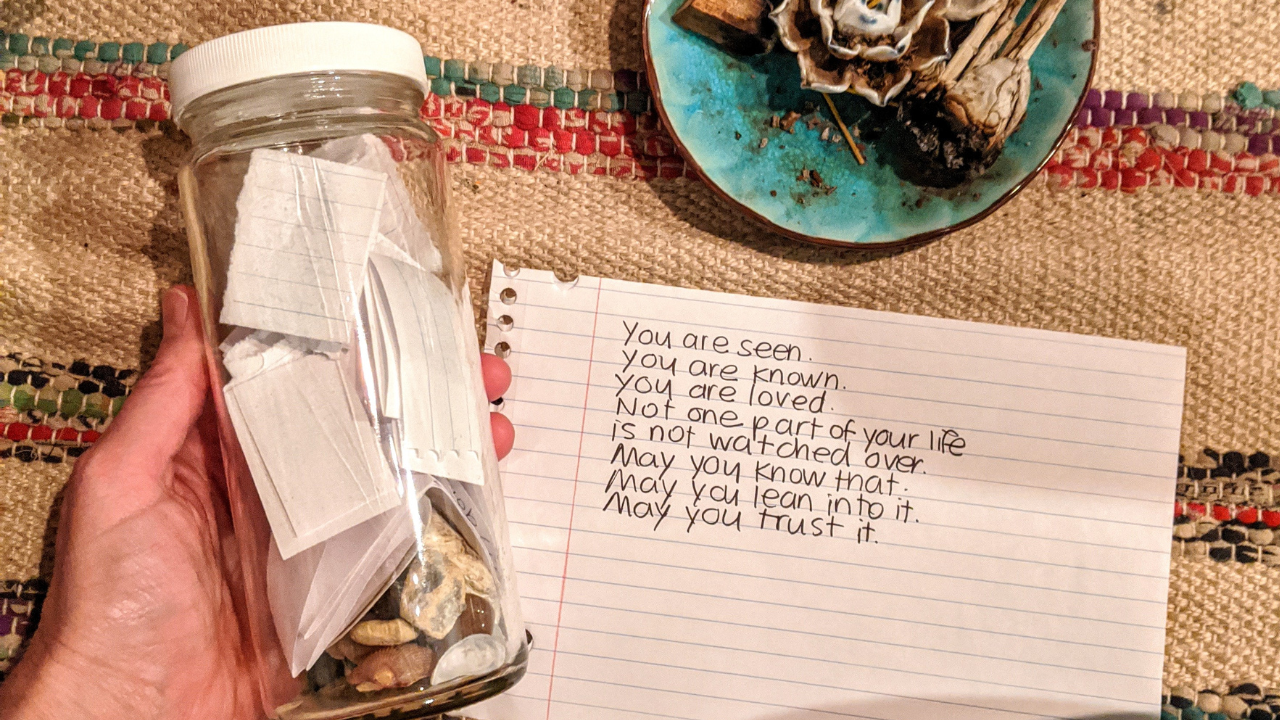 You are seen.
You are known.
You are loved.
Not one part of your life
is not watched over.
May you know that.
May you lean into it.
May you trust it.